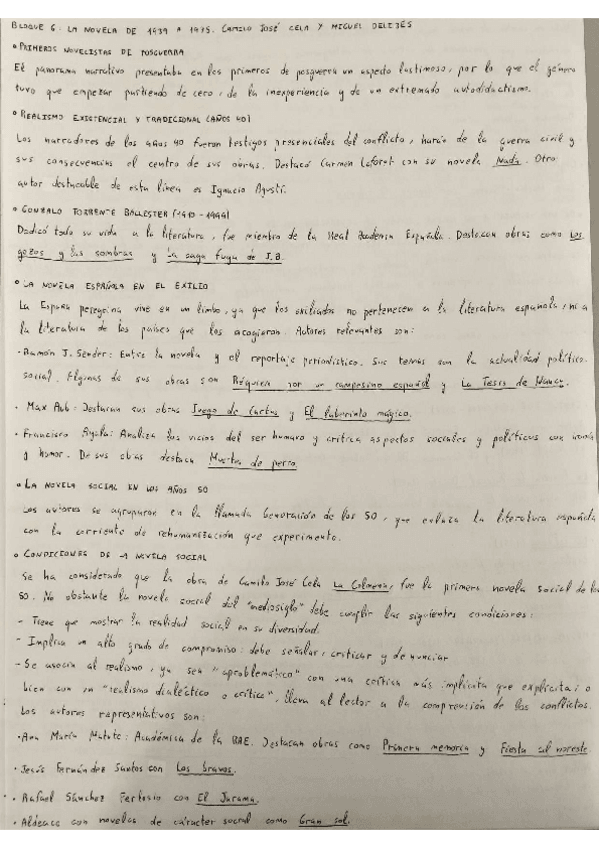 BLOQUE 6. LA NOVELA DE 1939 A 1975. CAMILO JOSÉ CELA Y MIGUEL DELIBES
• PRIMEROS NOVELISTAS DE POSGUERRA
El panorama narrativo presentaba en los primeros de posguerra un aspecto lastimoso, por lo que el género
tuvo que empezar partiendo de cero, de la inexperiencia y de un extremado autodidactismo.
• REALISMO EXISTENCIAL Y TRADICIONAL (AÑOS 40)
Los narradores de los años 40 fueron testigos presenciales del conflicto, harán de la guerra civil y
sus consecuencias el centro de sus obras. Destacó Carmen Laforet con su novela Nada. Otro
autor destacable de esta línea es Ignacio Agustí.
• GONZALO TORRENTE BALLESTER (1910-1999)
Dedicó toda su vida a la literatura, fue miembro de la Real Academia Española. Destacan obras como Los
gozos y las sombras y La saga fuga de J.B.
• LA NOVELA ESPAÑOLA EN EL EXILIO
La España peregrina vive en un limbo, ya que los exiliados no pertenecen a la literatura española, ni a
la literatura de los países que los acogieron. Autores relevantes son:
• Ramón J. Sender: Entre la novela y el reportaje periodístico. Sus temas son la actualidad político.
social. Algunas de sus obras son Réquiem por un campesino español y La Tesis de Nancy.
• Max Aub: Destacan sus obras Juego de Cartas y El laberinto mágico.
• Francisco Ayala: Analiza los vicios del ser humano y critica aspectos sociales y políticos con ironía
y humor. De sus obras destaca Muertes de perro.
• LA NOVELA SOCIAL EN LOS AÑOS 50
Los autores se agruparon en la llamada Generación de los 50, que enlaza la literatura española
con la corriente de rehumanización que experimento.
• CONDICIONES DE LA NOVELA SOCIAL
Se ha considerado que la obra de Camilo José Cela La Colmena, fue la primera novela social de los
50. No obstante la novela social del "mediosiglo" debe cumplir las siguientes condiciones:
- Tiene que mostrar la realidad social en su diversidad.
- Implica un alto grado de compromiso: debe señalar, criticar y denunciar
- Se asocia al realismo, ya sea "aproblemático" con una crítica más implícita que explícita; o
bien con un "realismo dialéctico o crítico", lleva al lector a la comprensión de los conflictos.
Los autores representativos son:
• Ana María Matute: Académica de la RAE. Destacan obras como Primera memoria y Fiesta al noroeste
• Jesús Fernández Santos con Los bravos.
• Rafael Sánchez Ferlosio con El Jarama.
• Aldecoa con novelas de carácter social como Gran sol.